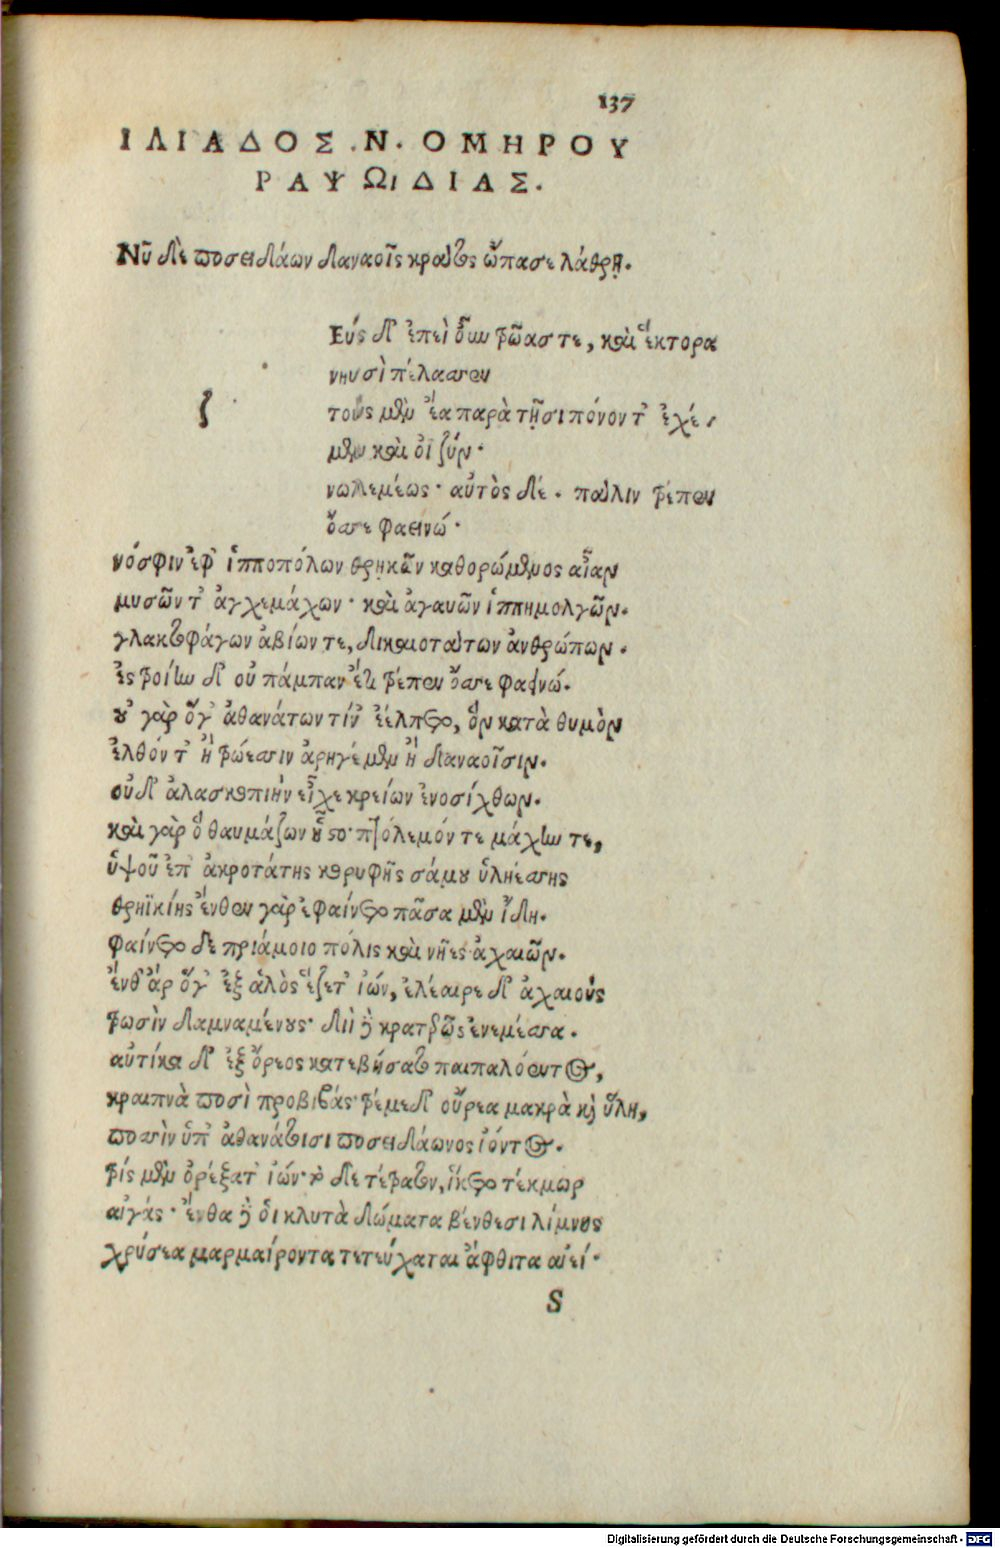 137
ΙΛΙΑΔΟΣ .Ν. ΟΜΗΡΟΥ
ΡΑΨΩιΔΙΑΣ.
Νῦ δὲ ποσειδάων δαναοῖς κράτος ὤπασε λάθρῃ.
Εύς δ' ἐπεὶ οὖν τρῶας τε, καὶ ἕκτορα
νηυσὶ πέλασσεν
ζ
τοὺς μὲν ἔα παρὰ τῇσι πόνον τ' ἐχέ-
μεν καὶ οἰζύν·
νωλεμέως· αὐτὸς δέ. πάλιν τρέπεν
ὄσσε φαεινώ·
νόσφιν ἐφ' ἱπποπόλων θρῃκῶν καθορώμενος αἶαν
μυσῶν τ' ἀγχεμάχων· καὶ ἀγαυῶν ἱππημολγῶν.
γλακτοφάγων ἀβίων τε, δικαιοτάτων ἀνθρώπων.
ἐς τροίην δ' οὐ πάμπαν ἔτι τρέπεν ὄσσε φαεινώ.
οὐ γὰρ ὅγ' ἀθανάτων τίν' ἐέλπετο, ὃν κατὰ θυμὸν
ἐλθόντ' ἢ τρώεσσιν ἀρηγέμεν ἢ δαναοῖσιν.
οὐδ' ἀλασκοπιὴν εἶχε κρείων ἐνοσίχθων.
καὶ γὰρ ὃ θαυμάζων ἧστο· πτόλεμόν τε μάχην τε,
ὑψοῦ ἐπ' ἀκροτάτης κορυφῆς σάμου ὑληέσσης
θρηϊκίης ἔνθεν γὰρ ἐφαίνετο πᾶσα μὲν ἴδη.
φαίνετο δὲ πριάμοιο πόλις καὶ νῆες ἀχαιῶν.
ἔνθ' ἄρ ὅγ' ἐξ ἁλὸς ἕζετ' ἰών, ἐλέαιρε δ' ἀχαιοὺς
τρωσὶν δαμναμένους· διὶ δὲ κρατερῶς ἐνεμέσσα.
αὐτίκα δ' ἐξ ὄρεος κατεβήσατο παιπαλόεντος,
κραιπνὰ ποσὶ προβιβάς· τρέμε δ' οὔρεα μακρὰ καὶ ὕλη,
ποσσὶν ὑπ' ἀθανάτοισι ποσειδάωνος ἰόντος.
τρὶς μὲν ὀρέξατ' ἰών· τὸ δὲ τέτρατον, ἵκετο τέκμωρ
αἰγάς· ἔνθα δὲ οἱ κλυτὰ δώματα βένθεσι λίμνης
χρύσεα μαρμαίροντα τετεύχαται ἄφθιτα αἰεί·
S
Digitalisierung gefördert durch die Deutsche Forschungsgemeinschaft - DFG